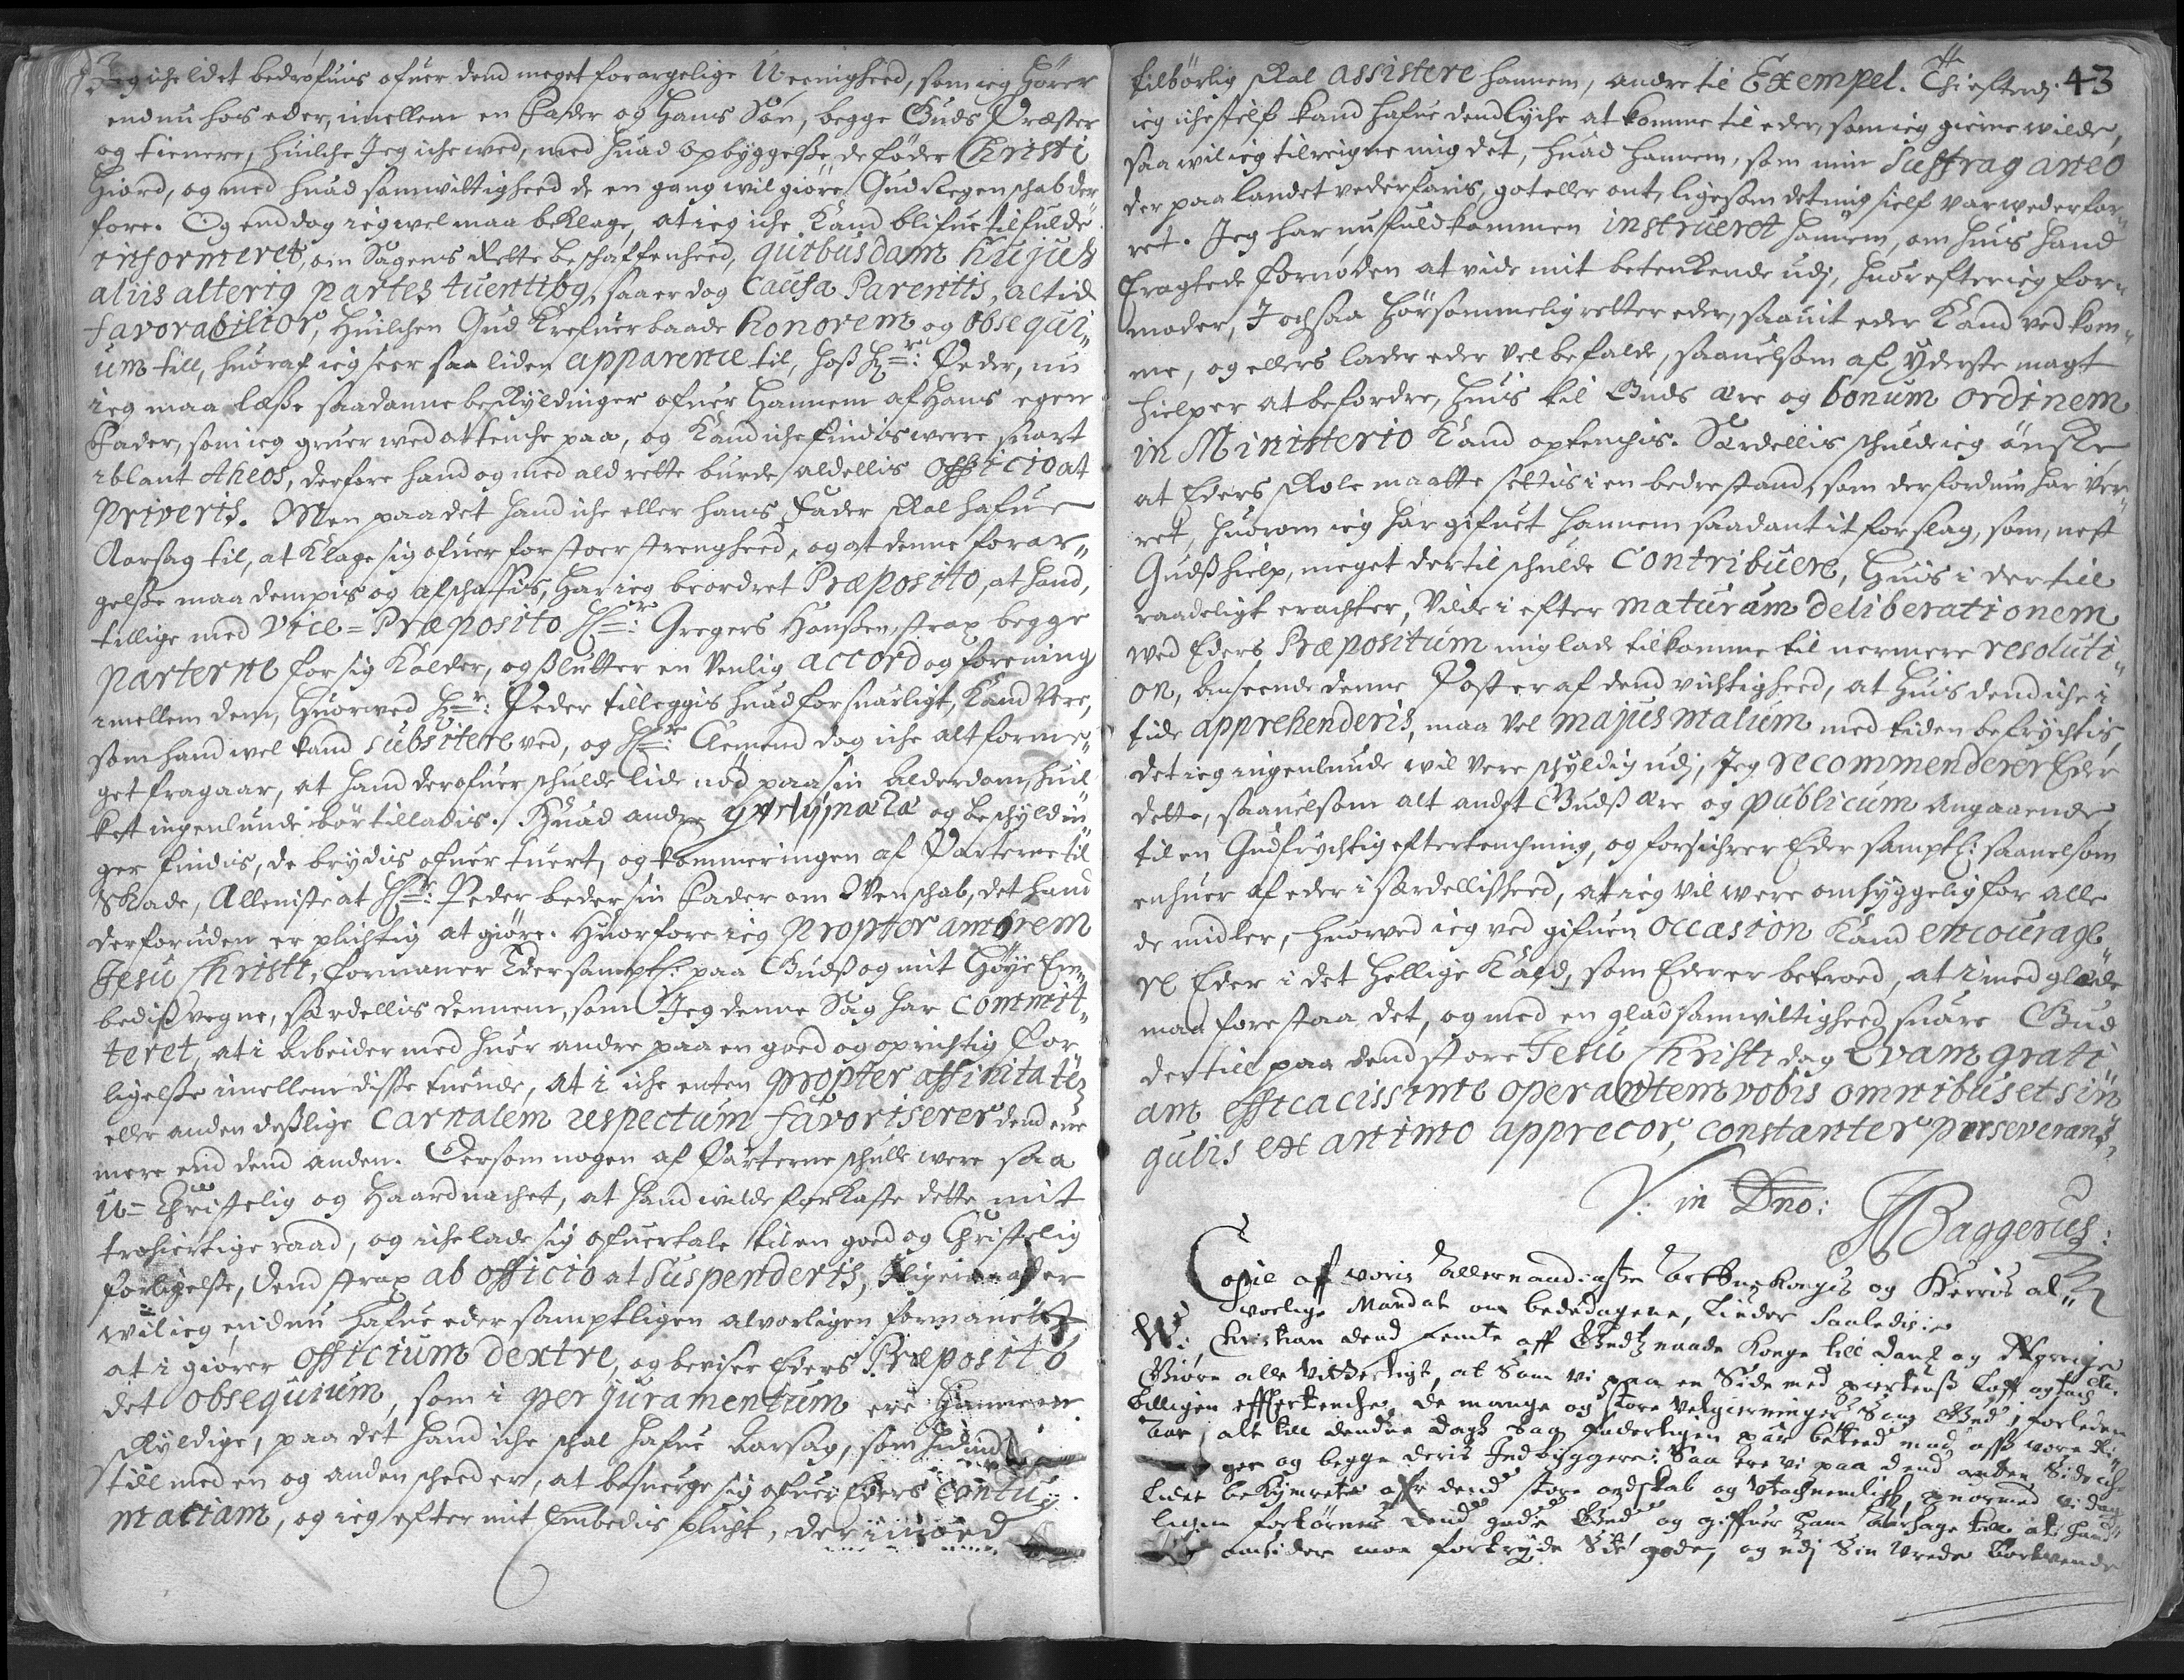 Jeg iche lidet bedrøfuis ofuer dend meget forargelige U-eenigheed, som ieg hører
endnu hos eder, imellem en Fader og Hans Søn, begge Guds Præster
og tienere, huilche Jeg iche wed, med huad opbyggelße de føder Christi
Hiord, og med huad samwittigheed de en gang wil giøre Gud Regenschab der
fore. Og enddog ieg wel maa beklage, at ieg iche kand blifue tilfulde
informeret, om Sagens Rette beschaffenheed, quibusdam hujus
aliis alterig partes tuentibg, saa er dog causa Parentis, altid
favorabilior, Huilchen Gud krefuer baade honorem og obsequi„
um till, huoraf ieg seer saa liden apparence til, hoß Hr: Peder, nu
ieg maa læße saadanne beskyldinger ofuer Hannem af Hans egen
Fader, som ieg gruer wed at tenche paa, og kand iche findis werre snart
iblant Atheos, derfore hand og med ald rette burde aldellis officio at
priveris. Men paa det hand iche eller hans Fader skal hafue
Aarsag til, at klage sig ofuer for stoer strengheed, og at denne forar„
gelße maa dempis og afschaffis, har ieg beordret Præposito, at hand,
tillige med Vice=Præposito Hr: Gregers Hanßen, strax begge
parterne for sig kalder, og slutter en venlig accord og forening
imellem dem, Huorwed Hr: Peder tilleggis huad forsuarligt, kand vere,
som hand wel kand subsistere ved, og Hr: Clemend dog iche alt forme„
get fragaar, at hand derofuer schulde lide nød paa sin Alderdom, huil
ket ingenlunde bør tilladis. Huad andre og beschyldin
ger findis, de brydis ofuer tuert, og kommer ingen af Parterne til
Skade, Alleniste at Hr: Peder beder sin Fader om Wenschab, det hand
derforuden er plichtig at giøre. Huorfore ieg propter amorem
Jesu Christi, formaner Eder samptl: paa Gudß og mit Høye Em„
bedis vegne, særdellis dennem, som Jeg denne Sag har commit„
teret, at i Arbeider med huer andre paa en goed og oprichtig For
ligelße imellem disse tuende, at i iche enten propter affinitatem
eller anden deßlige carnalem respectum favoriserer dend ene
mere end dend anden. Dersom nogen af Parterne schulle were saa
u=Christelig og Haardnachet, at hand wilde forkaste dette mit
trohiertige raad, og iche lade sig ofuertale til en goed og Christelig
forligelße, dend strax ab officio at suspenderis,
wil ieg endnu hafue eder samptligen alvorligen formanet
at i giører officium dextre, og beviser Eders Præposito
det obsequium, som i per juramentum ere Hannem
skyldige, paa det hand iche schal hafue Aarsag, som hidind
till med en og anden scheed er, at besuerge sig ofuer Eders contu„
matiam, og ieg efter mit Embedis plicht, der imoed
43
tilbørlig skal assistere hannem, andre til Exempel. Thi efterdj
ieg iche self kand hafue dend lyche at komme til eder, som ieg gierne wilde,
saa wil ieg tilreigne mig det, huad hannem, som min suffraganeo
der paa landet vederfaris, got eller ont, ligesom det mig sielf var wederfa„
ret. Jeg har nu fuldkommen instrueret hannem, om huis hand
Eragtede fornøden at vide mit betenkende udj, huor efter ieg for„
moder, I ochsaa hørsommelig retter eder, saavit eder kand ved kom„
me, og ellers lader eder vel befalde, saauelsom af yderste magt
hielper at befordre, huis til Guds ære og bonum ordinem
in Ministerio kand optenchis. Særdellis schulde ieg ønske
at Eders Skole maatte settis i en bedre stand, som der fordum har ver„
ret, huorom ieg har gifuet hannem saadant it forslag, som, nest
Gudß hielp, meget dertil schulde contribuere, Huis i dertill
raadeligt erachter, vilde i efter maturam deliberationem
wed Eders Præpositum mig lade tilkomme til nermere resoluti„
on, anseende denne Post er af dend vichtigheed, at huis dend iche i
tide apprehenderis, maa vel majus malum med tiden befrychtis,
det ieg ingenlunde wil vere schyldig udj, Jeg recommenderer Eder
dette, saauelsom alt andet Gudß ære og publicum angaaende
til en Gudfrychtig eftertenchning, og forsichrer Eder samptl: saauelsom
enhuer af eder i særdellißheed, at ieg vil were omhyggelig for alle
de midler, huorved ieg ved gifuen occasion kand encourage„
re Eder i det hellige kald, som Eder er betroed, at i med glæde
maa forestaa det, og med en glad samwittigheed suare Gud
dertill paa dend store Jesu Christi dag Qvam grati„
am efficacissime operantem vobis omnibus et sin
gulis ex animo apprecor, constanter perseverans,
V. in Dno:
HBaggerus:
Copie af woris Allernaadigste Arfue Kongis og Herris al„
vorlige Mandat om bededagene, liuder saaledis:
Wi Christian dend Femte aff Gudtz naade Konge till Dank og Norrige etc.
Giøre alle Vitterligt, at Som Vi paa en Side med hiertens Loff og tach
billigen effterteneher de mange og store Velgierninger Som Gud i forleden
Aar, alt till dendne dag, Saa faderligen har beteed mod oss vore Ri„
ger og begge deris Indbyggere: Saa ere vi paa dend anden Side iche
lidet bekymrede ofr dend store ondskab og utachnemlighd, huormed vi dag„
ligen fortørner dend gode Gud og giffuer ham Aarsage till at hand
omsider maa fortryde Sit gode, og udj Sin Vrede bortvende